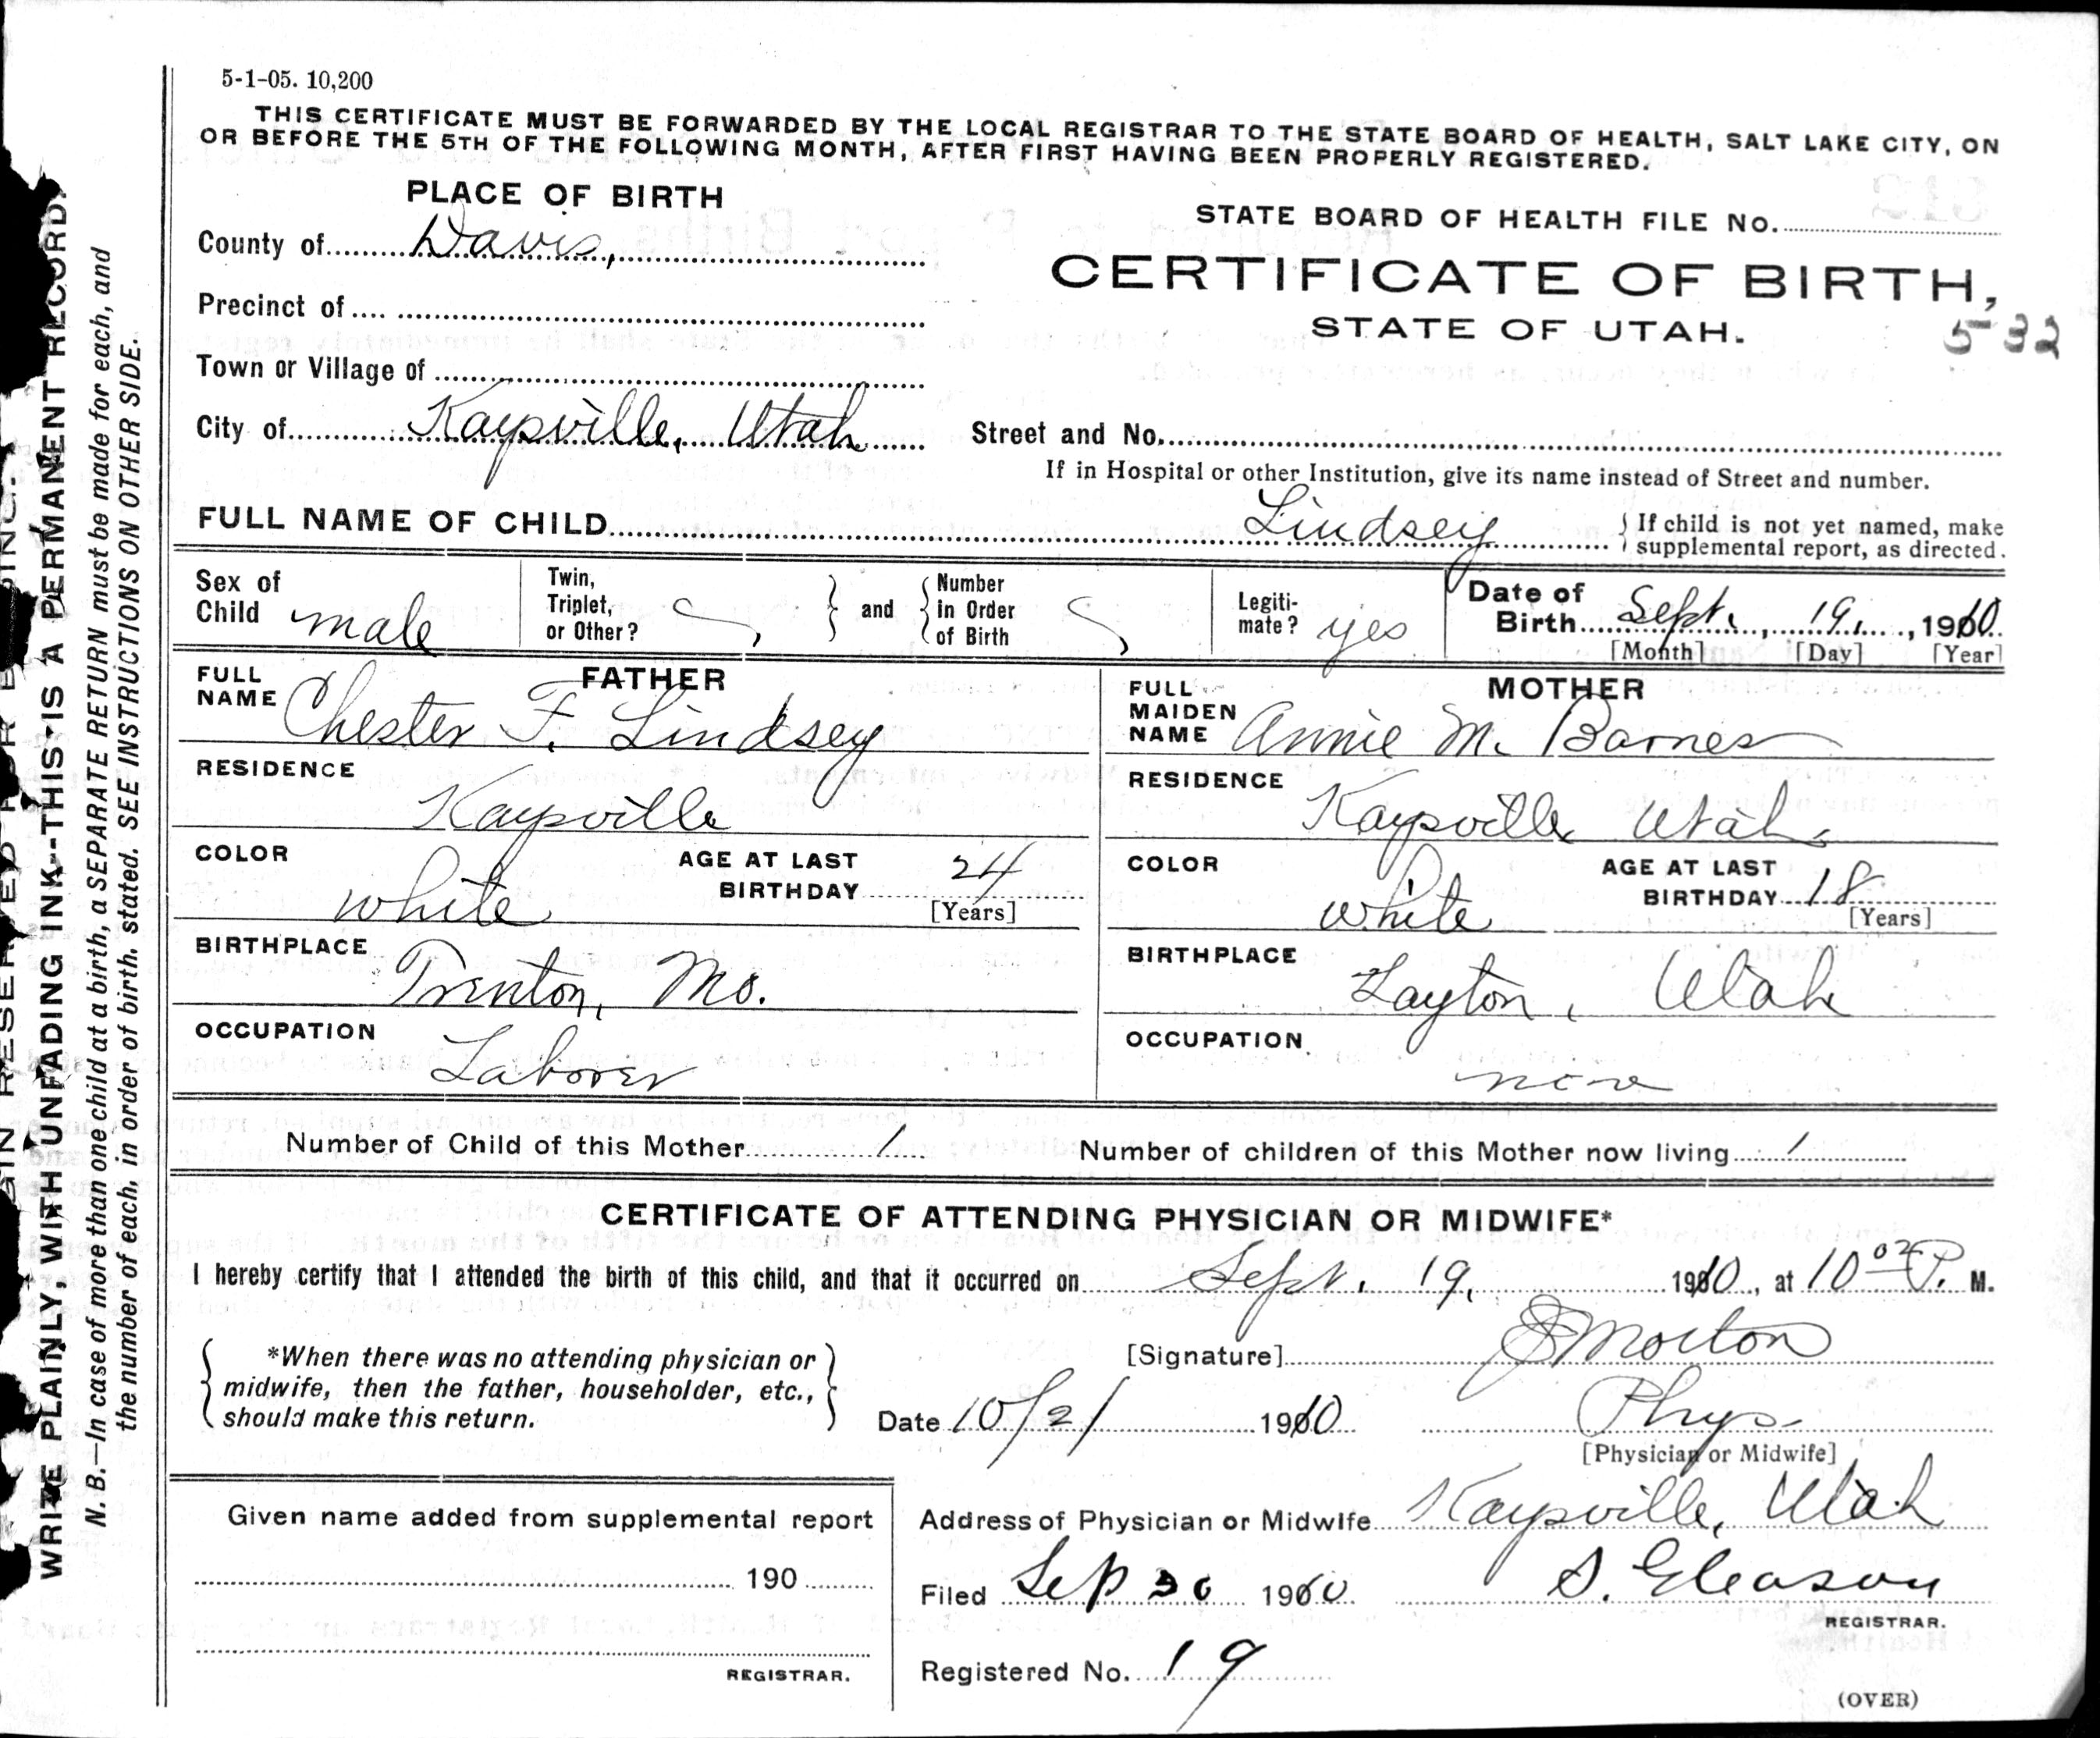 5-1-05. 10,200
THIS CERTIFICATE MUST BE FORWARDED BY THE LOCAL REGISTRAR TO THE STATE BOARD OF HEALTH, SALT LAKE CITY, ON
OR BEFORE THE 5TH OF THE FOLLOWING MONTH, AFTER FIRST HAVING BEEN PROPERLY REGISTERED.
PLACE OF BIRTH
STATE BOARD OF HEALTH FILE No.
County of Davis,
CERTIFICATE OF BIRTH,
Precinct of
STATE OF UTAH.
5-32
Town or Village of
City of Kaysville, Utah
Street and No.
If in Hospital or other Institution, give its name instead of Street and number.
FULL NAME OF CHILD Lindsey
If child is not yet named, make
supplemental report, as directed.
Sex of
Child male
Twin,
Triplet,
or Other?
and
Number
in Order
of Birth
Legiti-
mate? yes
Date of
Birth Sept. 19, 1910.
[Month] [Day] [Year]
FATHER
FULL
NAME Chester F. Lindsey
RESIDENCE
Kaysville
COLOR
white
AGE AT LAST
BIRTHDAY 24
[Years]
BIRTHPLACE
Trenton, Mo.
OCCUPATION
Laborer
MOTHER
FULL
MAIDEN
NAME Annie M. Barnes
RESIDENCE
Kaysville Utah,
COLOR
White
AGE AT LAST
BIRTHDAY 18
[Years]
BIRTHPLACE
Layton, Utah
OCCUPATION
Number of Child of this Mother 1
Number of children of this Mother now living 1
CERTIFICATE OF ATTENDING PHYSICIAN OR MIDWIFE*
I hereby certify that I attended the birth of this child, and that it occurred on Sept. 19, 1910, at 10 02 P. M.
*When there was no attending physician or
midwife, then the father, householder, etc.,
should make this return.
[Signature] Morton
Date 10/21 1910
Phys.
[Physician or Midwife]
Given name added from supplemental report
190
REGISTRAR.
Address of Physician or Midwife Kaysville, Utah
Filed Sep 30 1910
S. Gleason
REGISTRAR.
Registered No. 19
(OVER)
WRITE PLAINLY, WITH UNFADING INK--THIS IS A PERMANENT RECORD.
N. B.—In case of more than one child at a birth, a SEPARATE RETURN must be made for each, and
the number of each, in order of birth. stated. SEE INSTRUCTIONS ON OTHER SIDE.